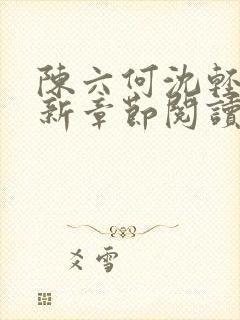 陳六何沈輕
新章節閱讀
爻雪